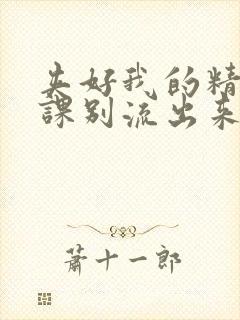 夹好我的精
課别流出来
蕭十一郎